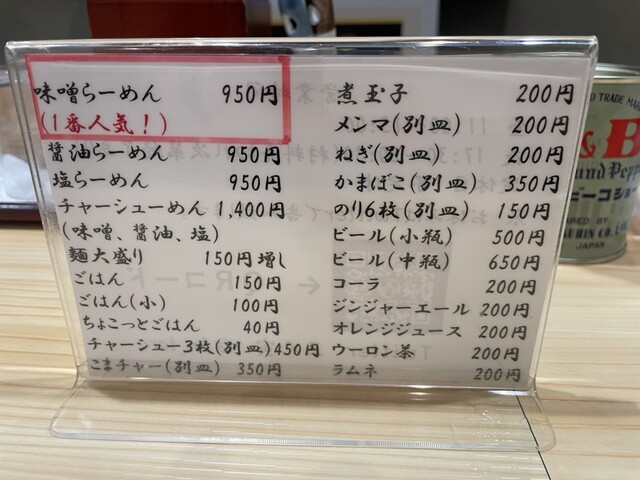 味噌らーめん 950円
(1番人気!)
醤油らーめん 950円
塩らーめん 950円
チャーシューめん 1,400円
(味噌、醤油、塩)
麺大盛り 150円増し
ごはん 150円
ごはん(小) 100円
ちょこっとごはん 40円
チャーシュー3枚(別皿)450円
こまチャー(別皿) 350円
煮玉子 200円
メンマ(別皿) 200円
ねぎ(別皿) 200円
かまぼこ(別皿) 350円
のり6枚(別皿) 150円
ビール(小瓶) 500円
ビール(中瓶) 650円
コーラ 200円
ジンジャーエール 200円
オレンジジュース 200円
ウーロン茶 200円
ラムネ 200円
TRADE
& B
JAPAN